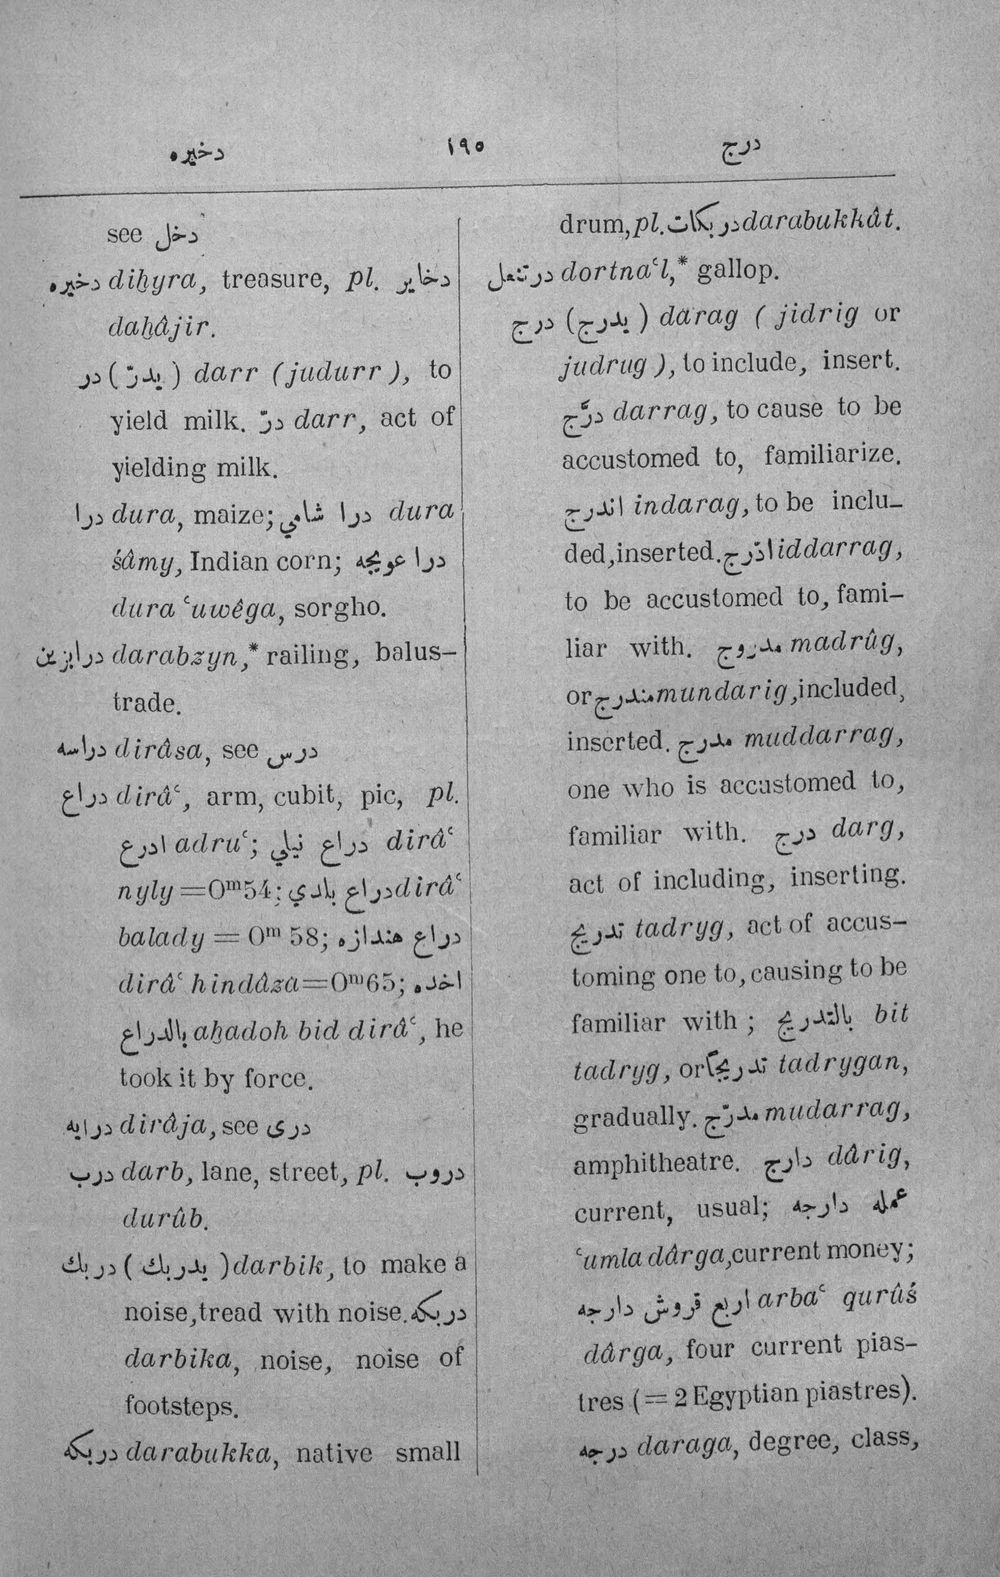 دخيره ١٩٥ درج
see دخل
دخيره dihyra, treasure, pl. دخاير
daḫâjir.
در (يدرّ) darr (judurr), to
yield milk. درّ darr, act of
yielding milk.
درا dura, maize; درا شامي dura
śâmy, Indian corn; درا عويجه
dura ʿuwêga, sorgho.
درابزين darabzyn,* railing, balus-
trade.
دراسه dirâsa, see درس
دراع dirâʿ, arm, cubit, pic, pl.
ادرع adruʿ; دراع نيلي dirâʿ
nyly=0ᵐ54; دراع بلدي dirâʿ
balady = 0ᵐ 58; دراع هندازه
dirâʿ hindâza=0ᵐ65; اخده
بالدراع aḫadoh bid dirâʿ, he
took it by force.
درايه dirâja, see درى
درب darb, lane, street, pl. دروب
durûb.
دربك (يدربك) darbik, to make a
noise, tread with noise. دربكه
darbika, noise, noise of
footsteps.
دربكه darabukka, native small
drum, pl. دربكات darabukkât.
درتنعل dortnaʿl,* gallop.
درج (يدرج) darag (jidrig or
judrug), to include, insert.
درّج darrag, to cause to be
accustomed to, familiarize.
اندرج indarag, to be inclu-
ded, inserted. ادّرج iddarrag,
to be accustomed to, fami-
liar with. مدروج madrûg,
or مندرج mundarig, included,
inserted. مدرج muddarrag,
one who is accustomed to,
familiar with. درج darg,
act of including, inserting.
تدريج tadryg, act of accus-
toming one to, causing to be
familiar with; بالتدريج bit
tadryg, or تدريجاً tadrygan,
gradually. مدرّج mudarrag,
amphitheatre. دارج dârig,
current, usual; عمله دارجه
ʿumla dârga, current money;
اربع قروش دارجه arbaʿ qurûś
dârga, four current pias-
tres (=2 Egyptian piastres).
درجه daraga, degree, class,